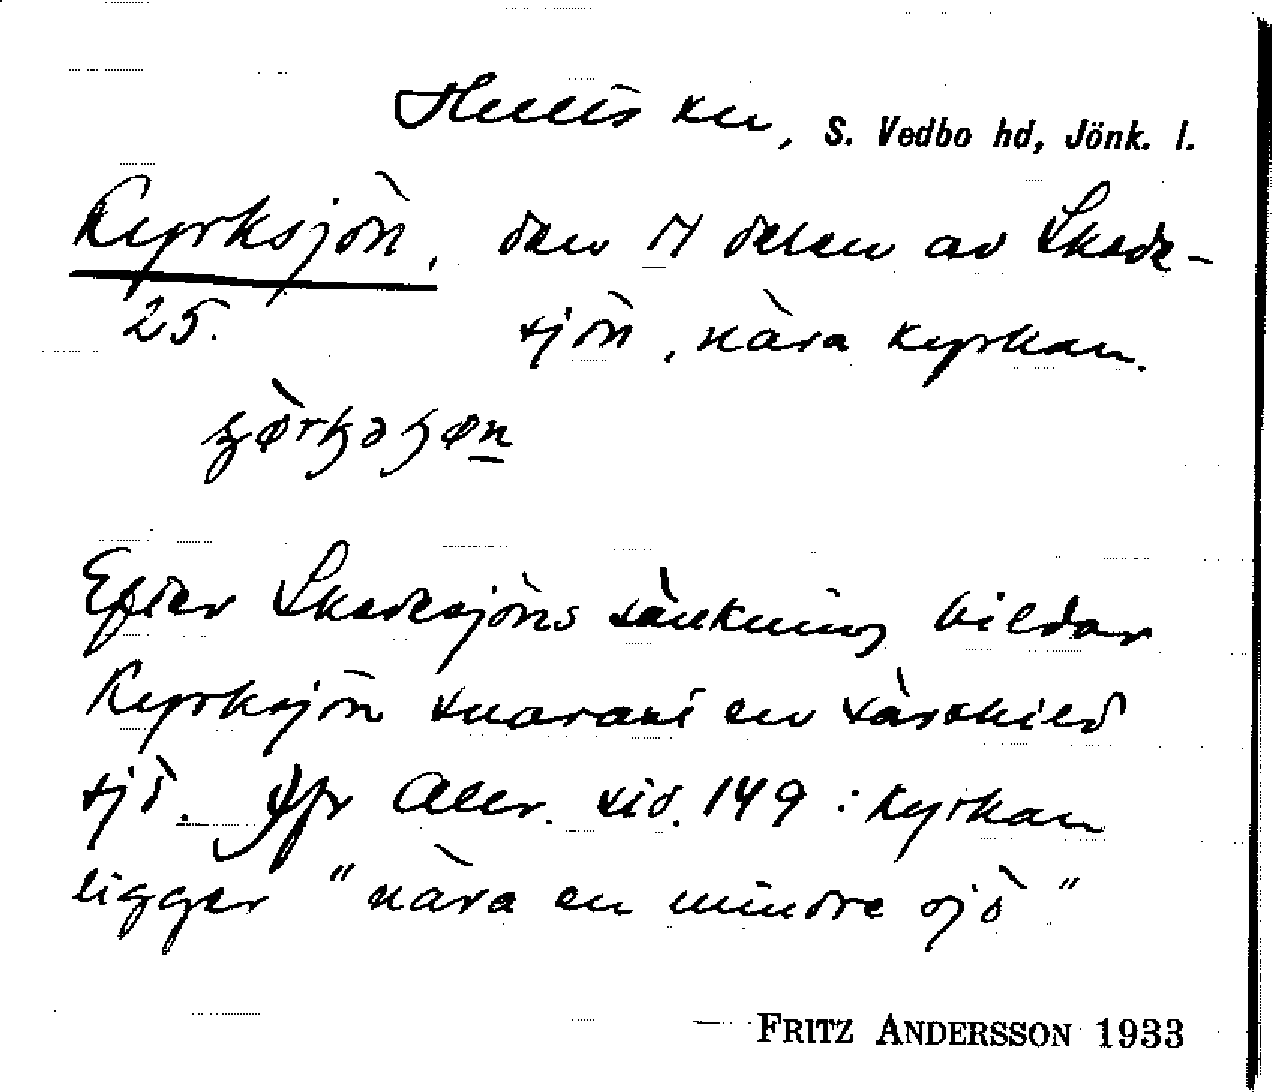 Hults sn, S. Vedbo hd, Jönk. l.
Kyrksjön, den N delen av Skede-
25. sjön, nära kyrkan.
Efter Skedesjöns sänkning bildar
Kyrksjön snarast en särskild
sjö. Jfr Allv. sid. 149: kyrkan
ligger "nära en mindre sjö"
FRITZ ANDERSSON 1933